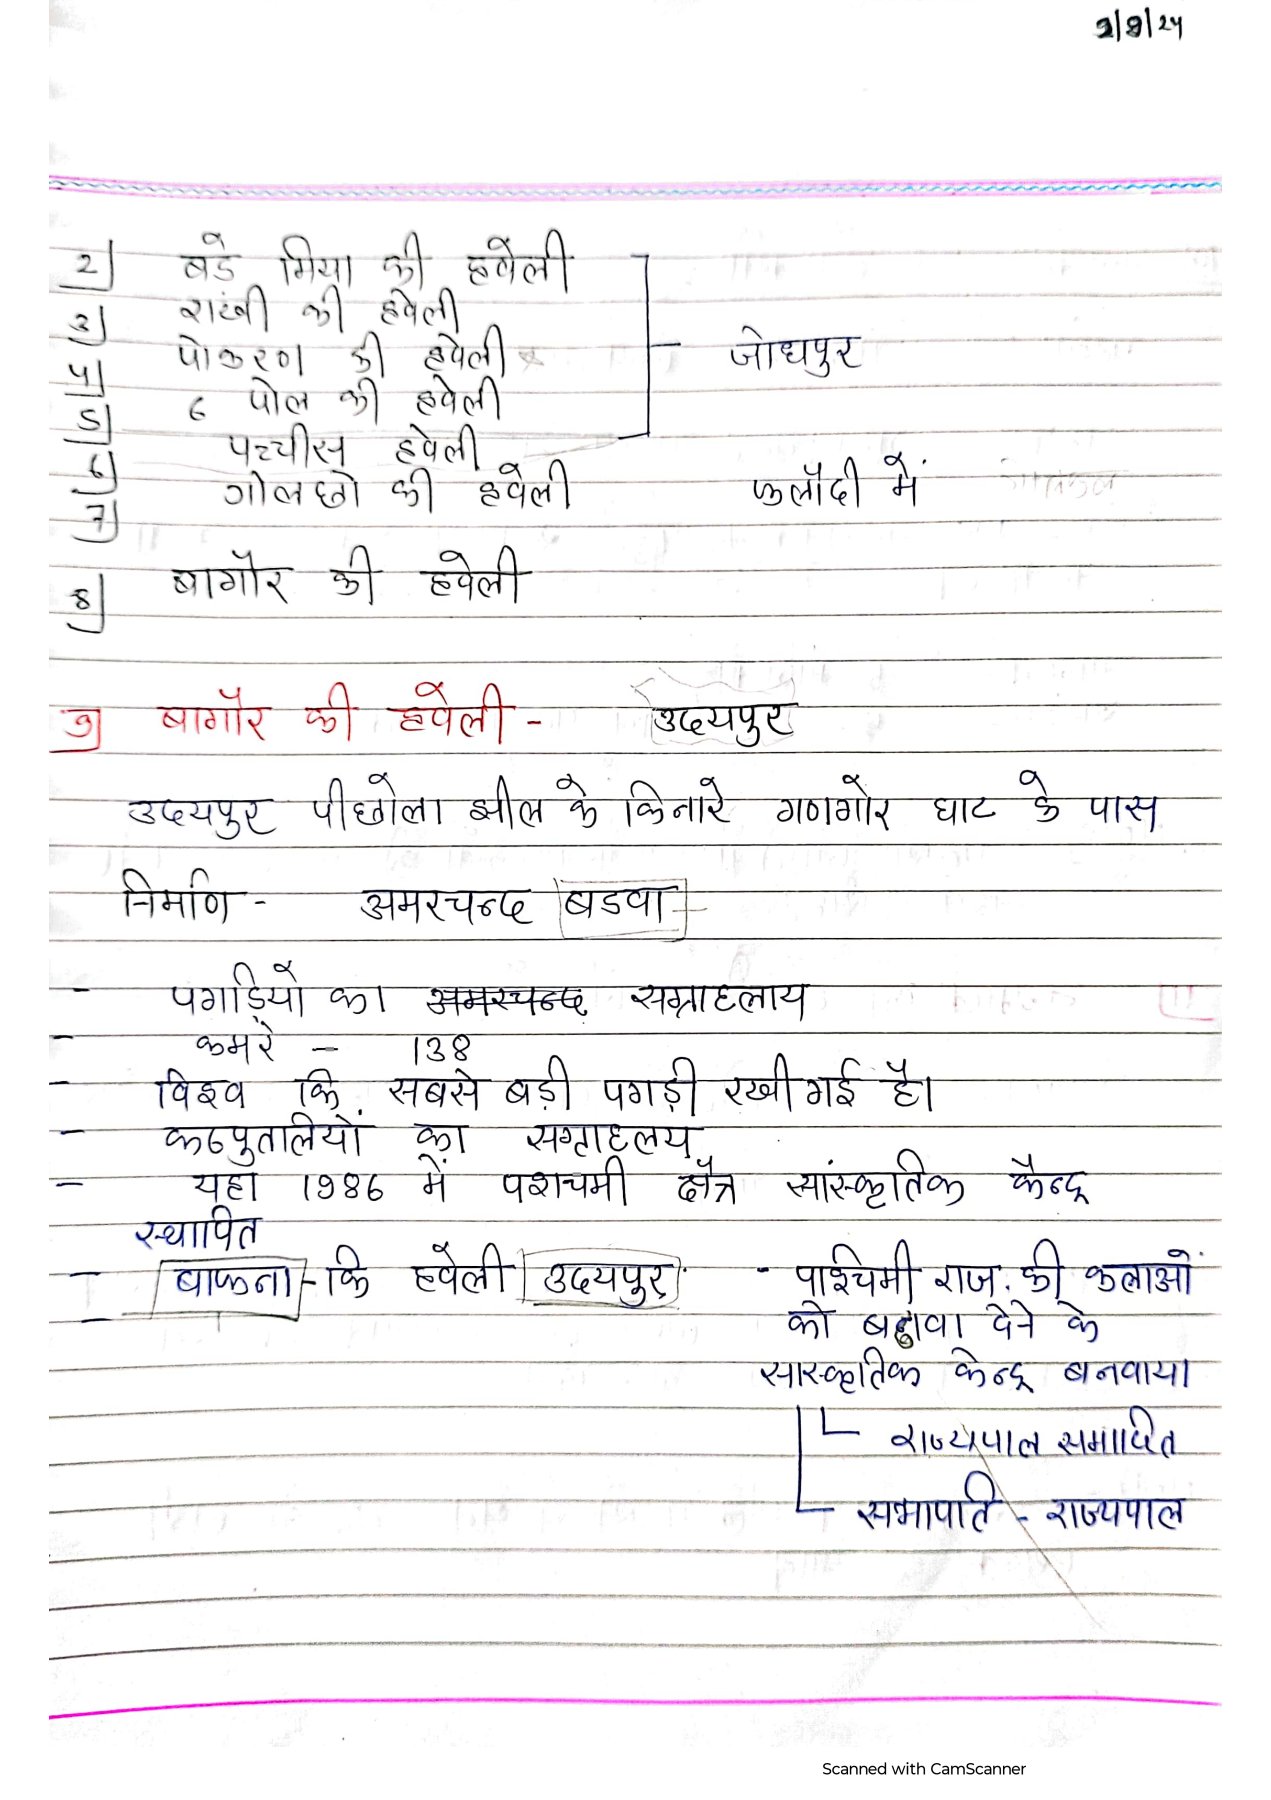 2/8/24
2] बडे मिया की हवेली
3] राखी की हवेली
4] पोकरण की हवेली - जोधपुर
5] ६ पोल की हवेली
6] पच्चीस हवेली
7] गोलछो की हवेली फलौदी में
8] बागौर की हवेली
9] बागौर की हवेली - उदयपुर
उदयपुर पीछौला झील के किनारे गणगोर घाट के पास
निर्माण - अमरचन्द बडवा
- पगड़ियों का अमरचन्द सग्राहलाय
- कमरे - 138
- विश्व कि सबसे बड़ी पगड़ी रखी गई है।
- कठपुतालियों का सग्राहलय
- यहा 1986 में पशचमी क्षैत्र सांस्कृतिक कैन्द्र
स्थापित
- बाफना - कि हवेली उदयपुर
- पाश्चिमी राज. की कलाओं
को बढावा देने के
सास्कृतिक केन्द्र बनवाया
राज्यपाल समापित
सभापति - राज्यपाल
Scanned with CamScanner